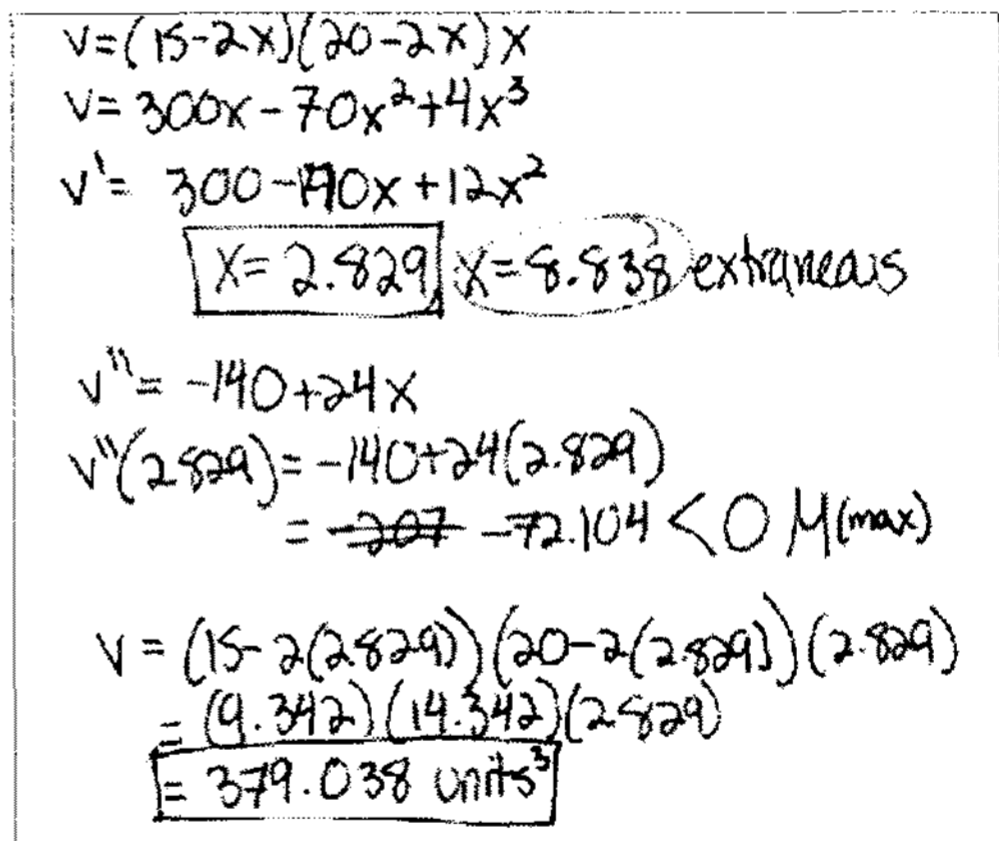 V=(15-2x)(20-2x)x
V= 300x-70x²+4x³
V'= 300-140x+12x²
x= 2.829, x=8.838 extraneous
V"= -140+24x
V"(2.829)= -140+24(2.829)
= -207 -72.104 < 0 M(max)
V = (15-2(2.829))(20-2(2.829))(2.829)
= (9.342)(14.342)(2.829)
= 379.038 units³